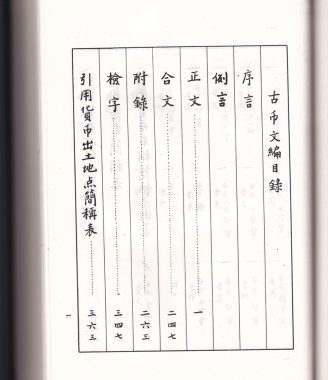 古币文編目錄
序言
例言
正文 一
合文 二四七
附錄 二六三
檢字 三四七
引用貨币出土地点簡稱表 三六三
一